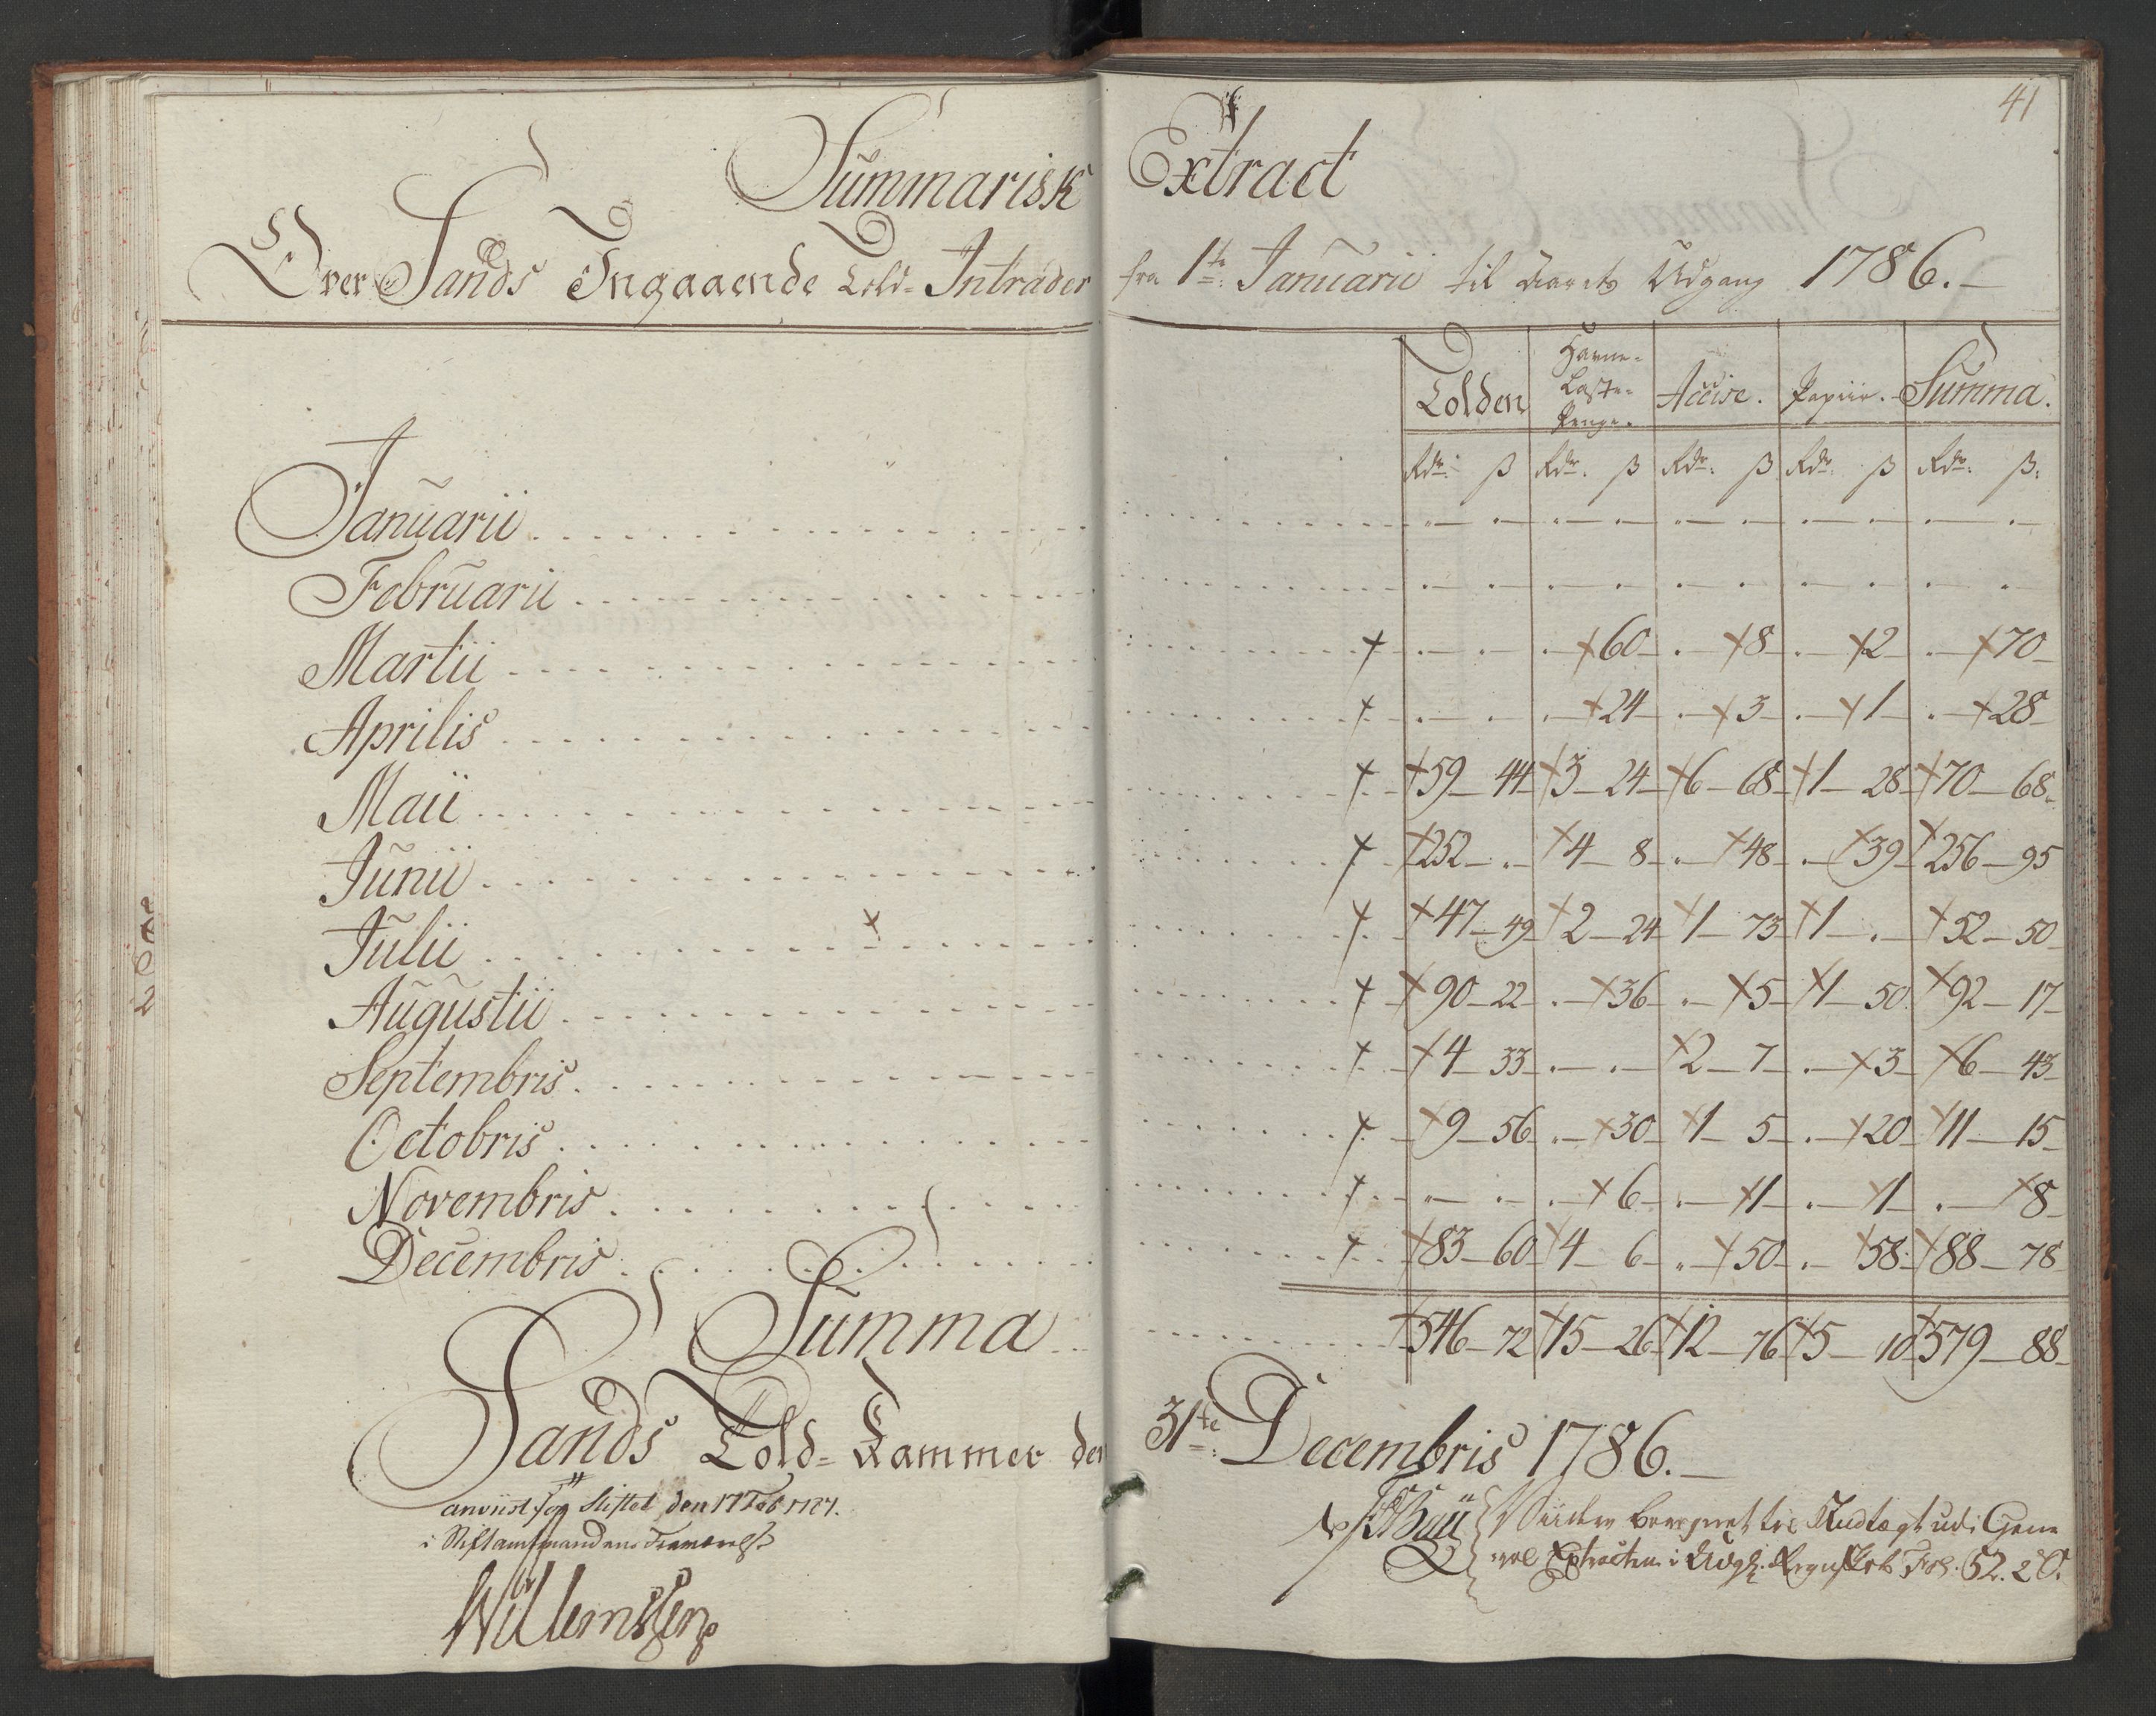 41
Summarisk Extract
Over Sands Ingaaende Told-Intrader fra 1te Januarii til Aarets Udgang 1786.
Tolden | Havne-Laste-Penge. | Accise. | Papiir. | Summa.
Rdr. ß | Rdr. ß | Rdr. ß | Rdr. ß | Rdr. ß.
Januarii
Februarii
Martii + | — | + 60 | + 8 | + 2 | + 70
Aprilis + | — | + 24 | + 3 | + 1 | + 28
Maii + | + 59 — 44 | + 3 — 24 | + 6 — 68 | + 1 — 28 | + 70 — 68
Junii + | + 252 — | + 4 — 8 | + 48 | + 39 | + 256 — 95
Julii + | + 47 — 49 | + 2 — 24 | + 1 — 73 | + 1 — | + 52 — 50
Augustii + | + 90 — 22 | + 36 | + 5 | + 1 — 50 | + 92 — 17
Septembris + | + 4 — 33 | — | + 2 — 7 | + 3 | + 6 — 43
Octobris + | + 9 — 56 | + 30 | + 1 — 5 | + 20 | + 11 — 15
Novembris + | — | + 6 | + 1 | + 1 | + 8
Decembris + | + 83 — 60 | + 4 — 6 | + 50 | + 58 | + 88 — 78
Summa + 546 — 72 | + 15 — 26 | + 12 — 76 | + 5 — 10 | + 579 — 88
Sands Told-Kammer den 31te Decembris 1786.
anviist for Stiftet den 17 Feb 1787.
i Stiftamtmandens
Willemsen
til Indtægt udi Gene
ral Extracten i Fol. 52.